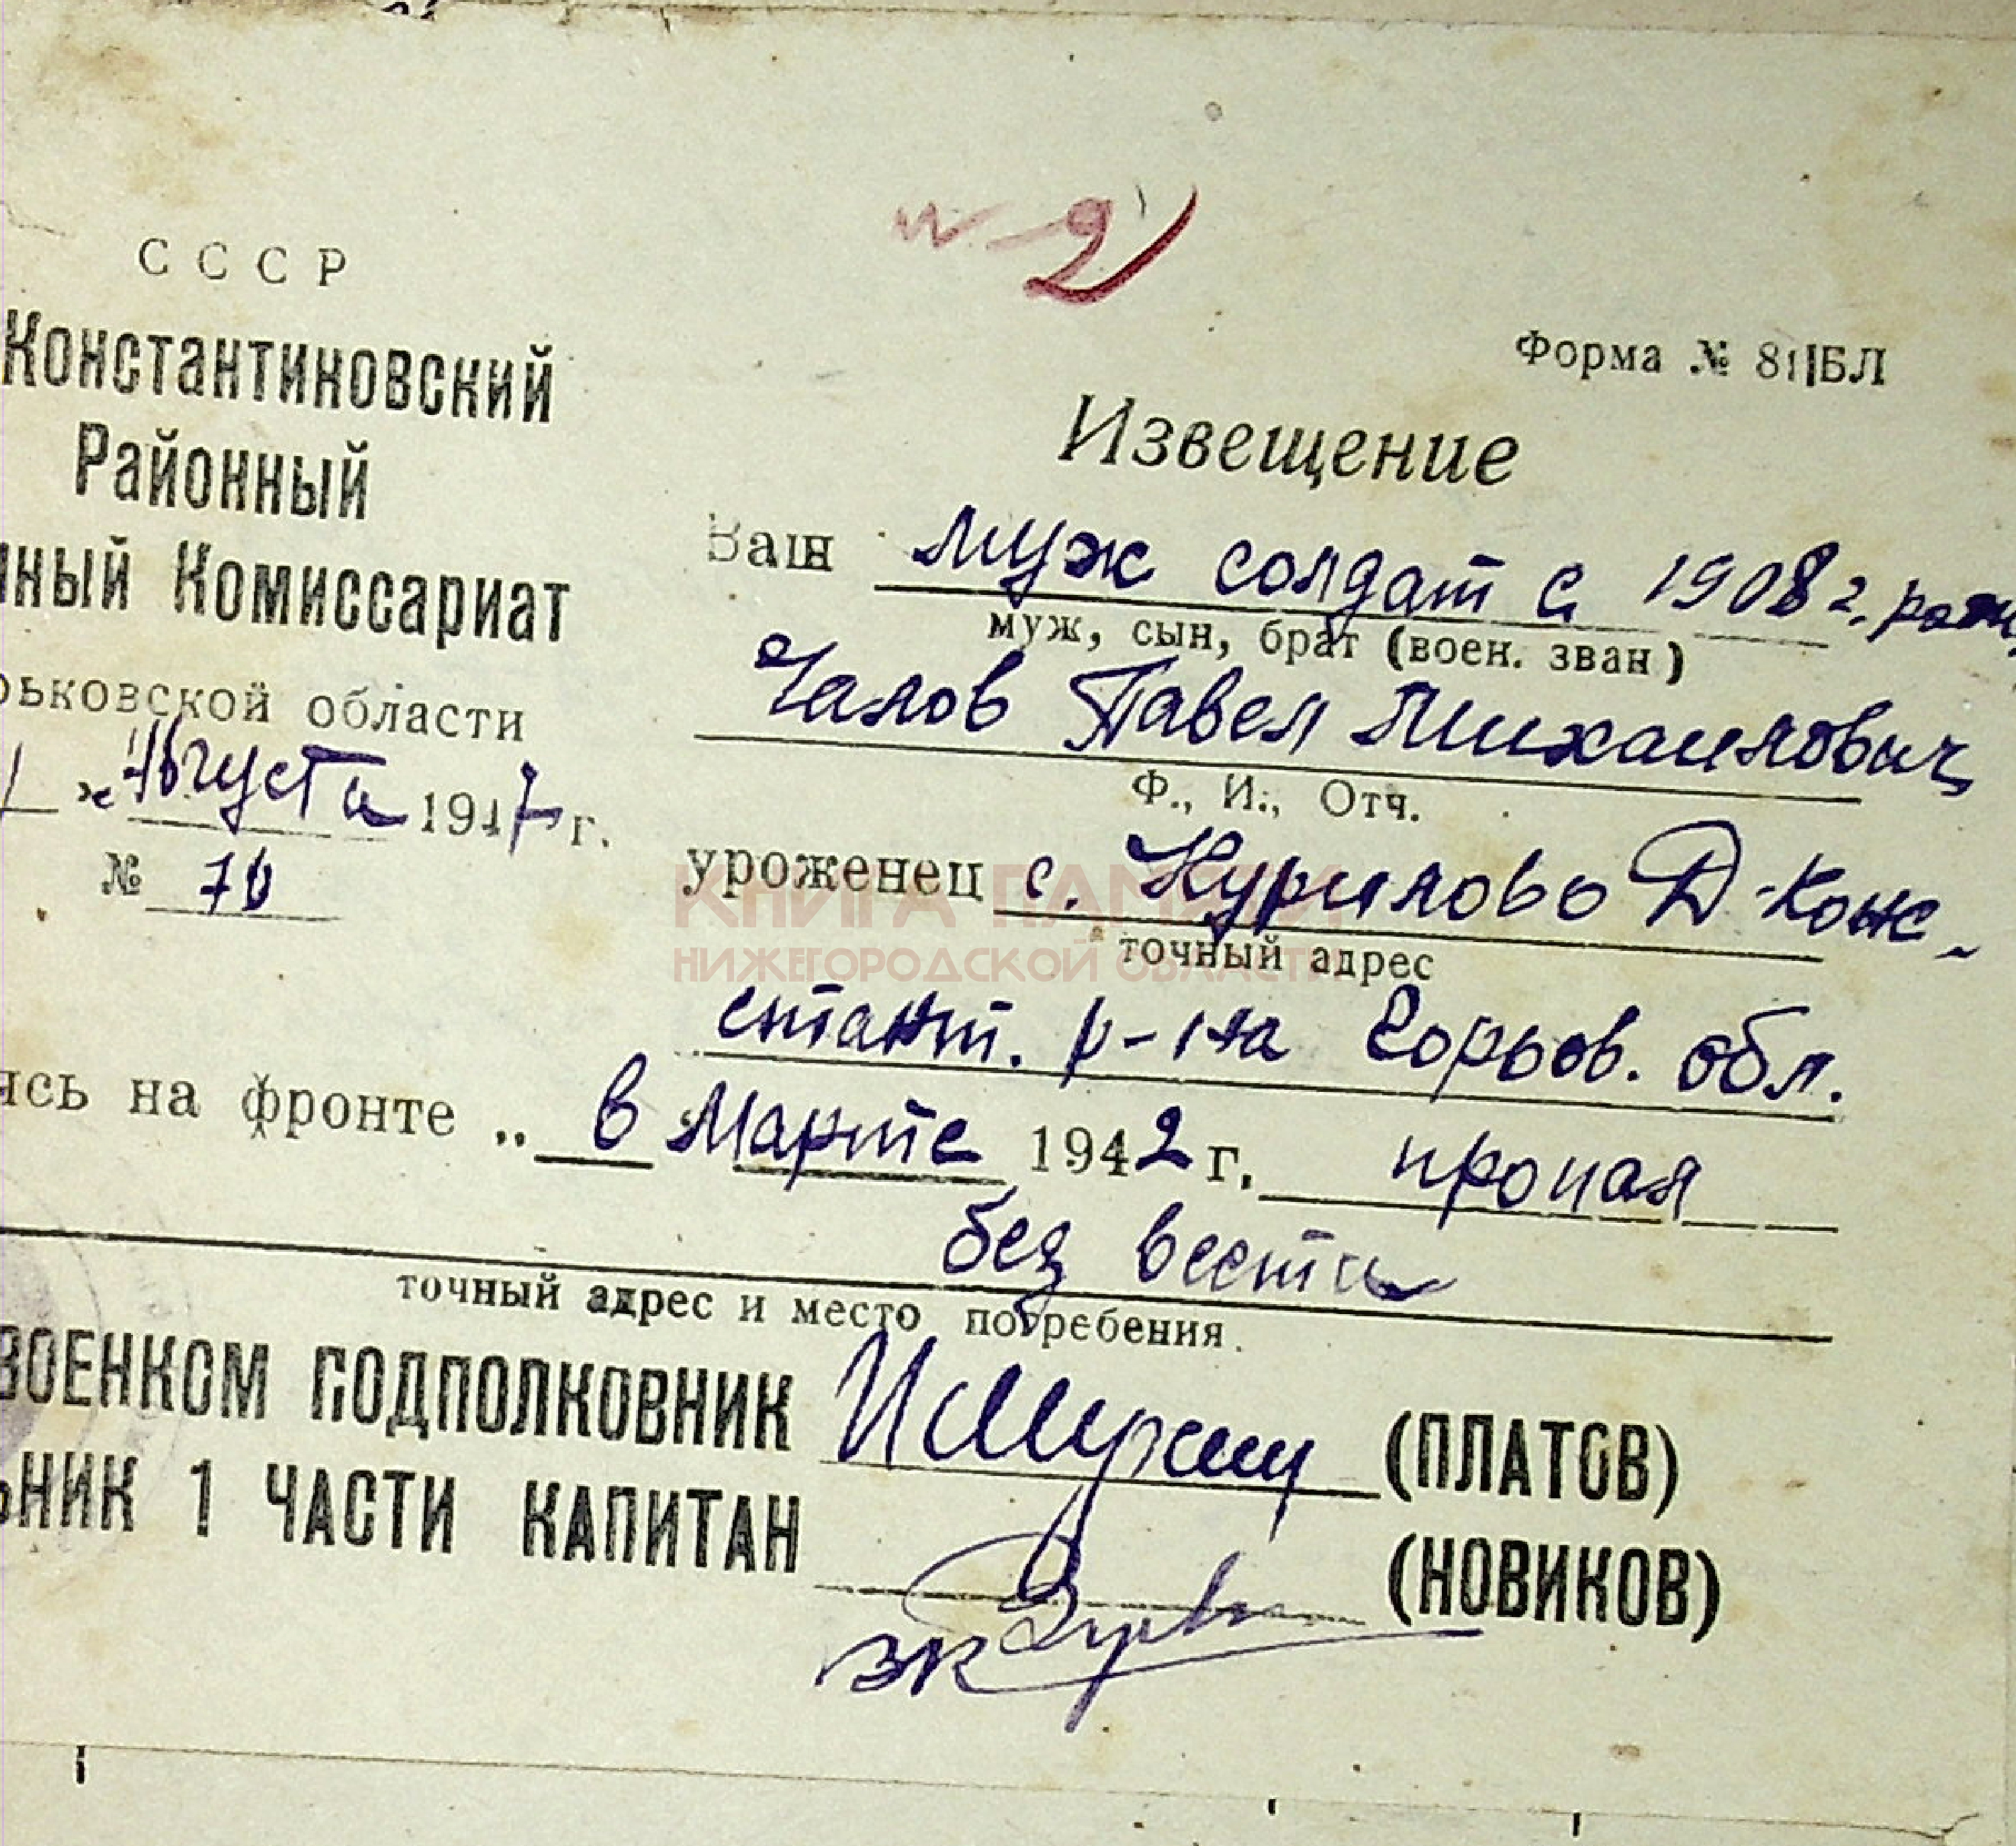 н-2
СССР
Константиновский
Районный
ный Комиссариат
рьковской области
" Августа 1947 г.
№ 70
Форма № 81 БЛ
Извещение
Ваш муж солдат с 1908 г. рожд
муж, сын, брат (воен. зван)
Чалов Павел Михаилович
Ф., И., Отч.
уроженец с. Курилово Д-Кон-
точный адрес
КНИГА ПАМЯТИ
НИЖЕГОРОДСКОЙ ОБЛАСТИ
стант. р-на Горьов. обл.
ясь на фронте „ в Марте 1942 г. пропал
без вести
точный адрес и место погребения.
ВОЕНКОМ ПОДПОЛКОВНИК (ПЛАТОВ)
ЬНИК 1 ЧАСТИ КАПИТАН (НОВИКОВ)